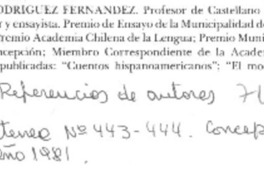 ODRIGUEZ FERNANDEZ. Profesor de Castellano
r y ensayista. Premio de Ensayo de la Municipalidad d
remio Academia Chilena de la Lengua; Premio Muni
ncepción; Miembro Correspondiente de la Acade
publicadas: "Cuentos hispanoamericanos"; "El mo
Referencias de autores 71
tenea Nº 443-444. Concep
ño 1981.